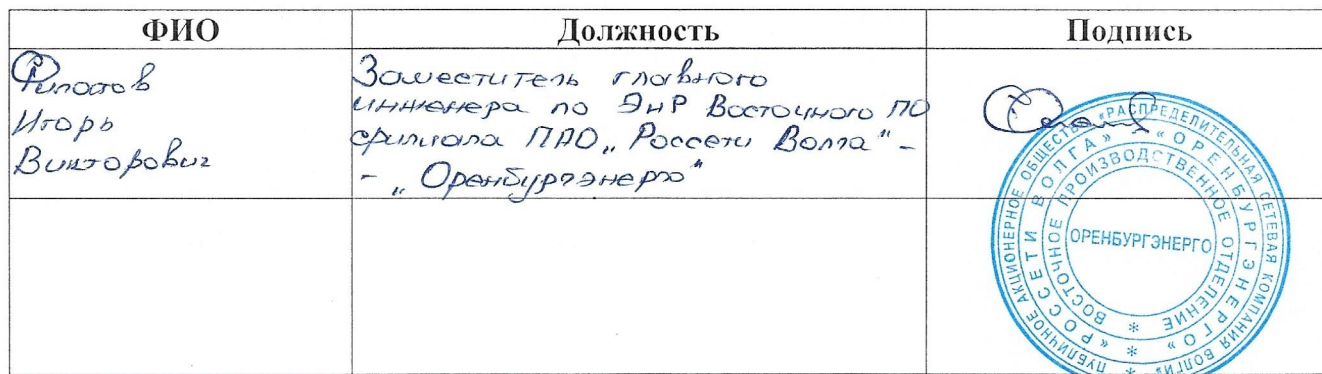 ФИО Должность Подпись
Филатов
Игорь
Викторович
Заместитель главного
инженера по ЭиР Восточного ПО
филиала ПАО „Россети Волга" -
- „Оренбургэнерго"
ПУБЛИЧНОЕ АКЦИОНЕРНОЕ ОБЩЕСТВО «РАСПРЕДЕЛИТЕЛЬНАЯ СЕТЕВАЯ КОМПАНИЯ ВОЛГИ» *
«РОССЕТИ ВОЛГА» «ОРЕНБУРГЭНЕРГО» *
ВОСТОЧНОЕ ПРОИЗВОДСТВЕННОЕ ОТДЕЛЕНИЕ *
ОРЕНБУРГЭНЕРГО